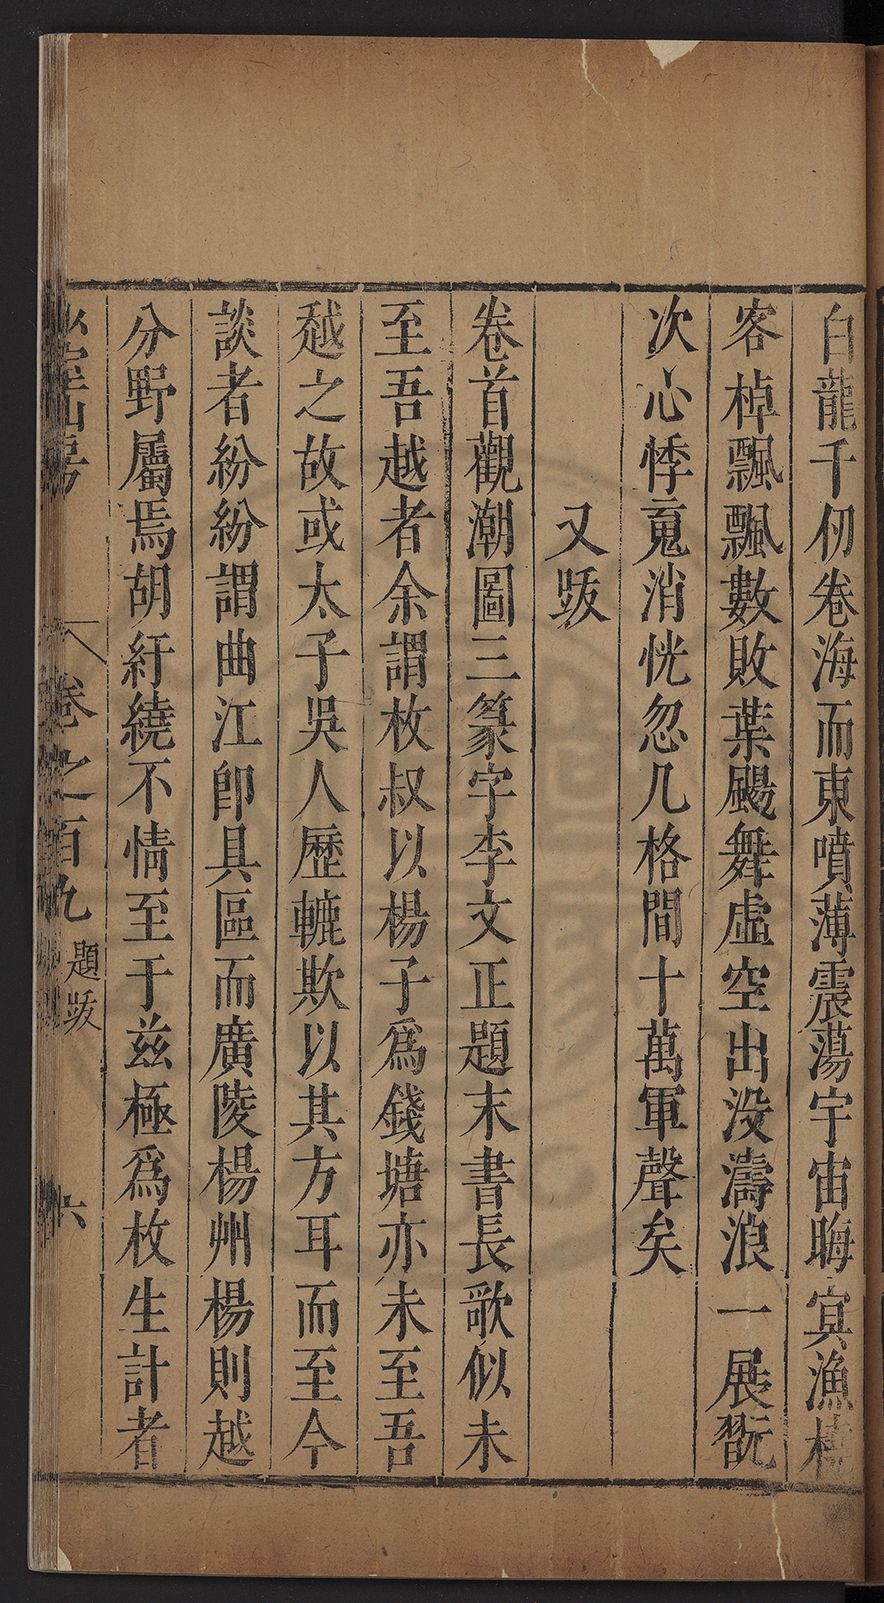 白龍千仞卷海而東噴薄震蕩宇宙晦㝠漁
客棹飄飄數敗葉颺舞虛空出没濤浪一展翫
次心悸䰟消恍忽几格間十萬軍聲矣
又跋
卷首觀潮圖三篆字李文正題末書長歌似未
至吾越者余謂枚叔以楊子爲錢塘亦未至吾
越之故或太子吳人歷轆欺以其方耳而至今
談者紛紛謂曲江卽具區而廣陵楊州楊則越
分野屬焉胡紆繞不情至于兹極爲枚生計者
少室山房 卷之百九 題跋 六